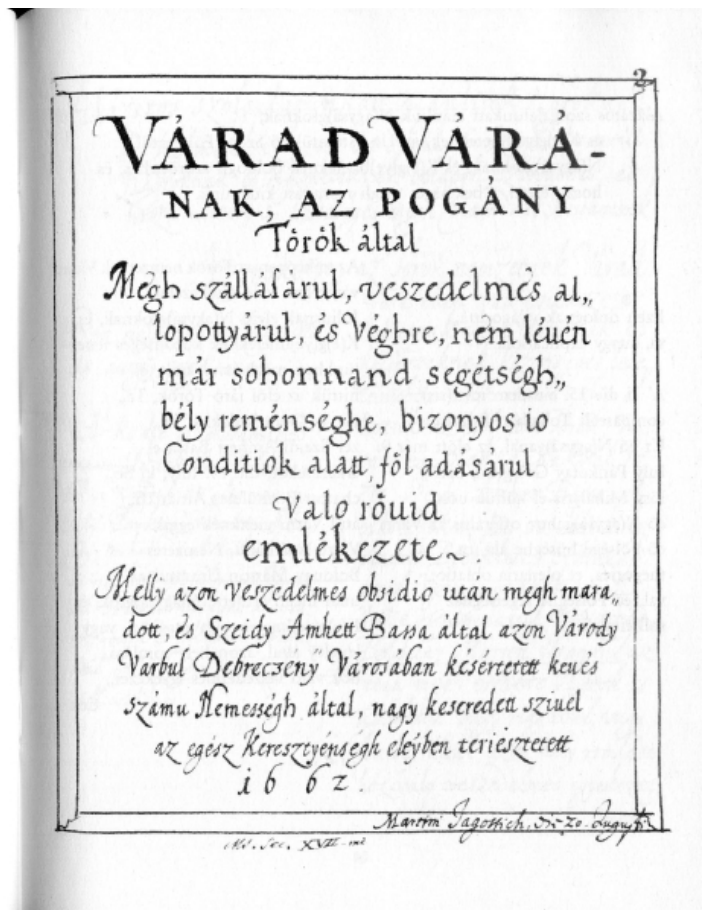 2
VÁRAD VÁRA-
NAK, AZ POGANY
Tôrôk által
Mégh szállásarul, veszedelmes al„
lopottyárul, és Véghre, nem lévén
már sohonnand, segétségh„
bély reménséghe, bizonyos io
Conditiok alatt, fôl adásarul
Valo rôuid
emlékezete.
Melly azon veszedelmes obsidio után mégh mara„
dott, és Szeidy Amhett Bassa által azon Várody
Várbul Debreczeny Városában késertetett keués
szamu Nemességh által, nagy keseredett sziuel
az egész Keresztyénségh eleýben teriesztetett
1662.
Martini Jagossich, die 20. Augusti
Ms. Sec. XVII-mi